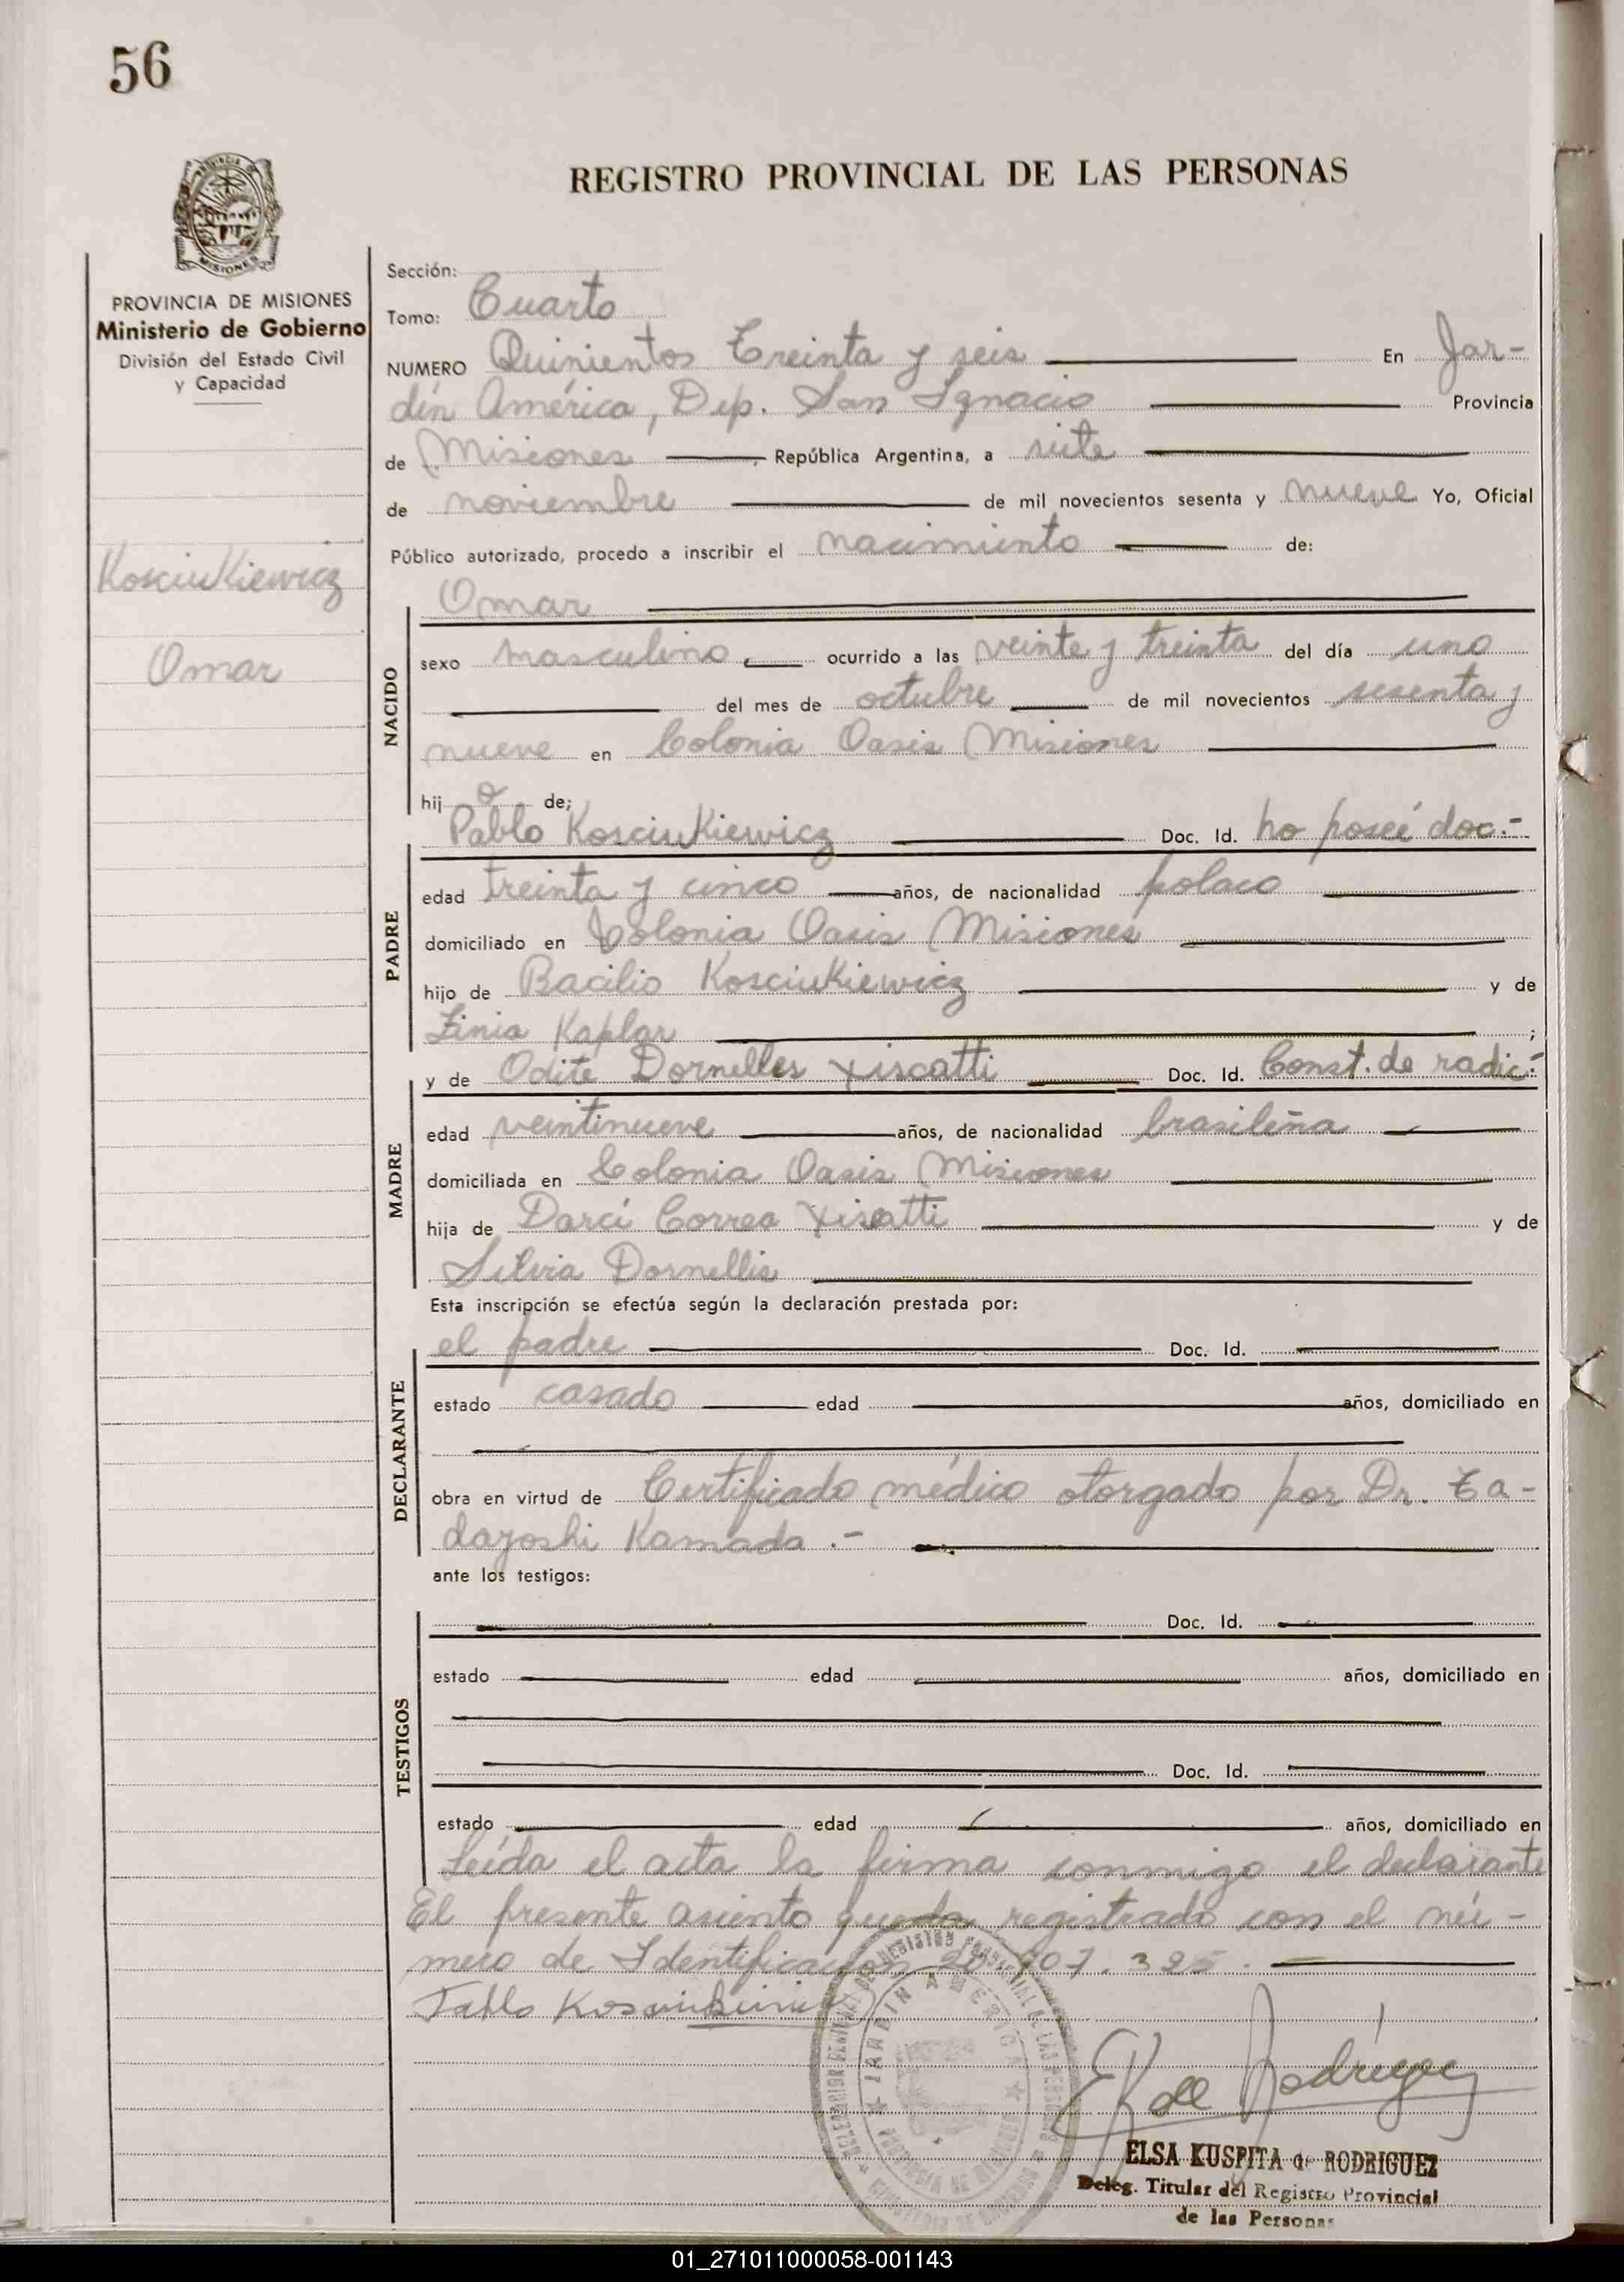 56
REGISTRO PROVINCIAL DE LAS PERSONAS
PROVINCIA DE MISIONES
Ministerio de Gobierno
División del Estado Civil
y Capacidad
Kosciukiewicz
Omar
Sección:
Tomo: Cuarto
NUMERO Quinientos Treinta y seis En Jar-
dín América, Dep. San Ignacio Provincia
de Misiones, República Argentina, a siete
de noviembre de mil novecientos sesenta y nueve Yo, Oficial
Público autorizado, procedo a inscribir el nacimiento de:
Omar
NACIDO
sexo masculino ocurrido a las veinte y treinta del día uno
del mes de octubre de mil novecientos sesenta y
nueve en Colonia Oasis Misiones
hijo de;
Pablo Kosciukiewicz Doc. Id. no poseé doc.-
PADRE
edad treinta y cinco años, de nacionalidad polaco
domiciliado en Colonia Oasis Misiones
hijo de Bacilio Kosciukiewicz y de
Zinia Kaplar ;
y de Odite Dornelles Xiscatti Doc. Id. Const. de radic.-
MADRE
edad veintinueve años, de nacionalidad brasileña
domiciliada en Colonia Oasis Misiones
hija de Darcí Correa Xiscatti y de
Silvia Dornellis
Esta inscripción se efectúa según la declaración prestada por:
el padre Doc. Id.
DECLARANTE
estado casado edad años, domiciliado en
obra en virtud de Certificado médico otorgado por Dr. Ta-
dayoshi Kamada .-
ante los testigos:
TESTIGOS
Doc. Id.
estado edad años, domiciliado en
Doc. Id.
estado edad años, domiciliado en
Leída el acta la firma conmigo el declarante
El presente asiento queda registrado con el nú-
mero de Identificación 20.907.325.
Pablo
JARDIN AMERICA
PROVINCIA DE MISIONES
E K de Rodríguez
ELSA KUSPITA de RODRIGUEZ
Deleg. Titular del Registro Provincial
de las Personas
01_271011000058-001143